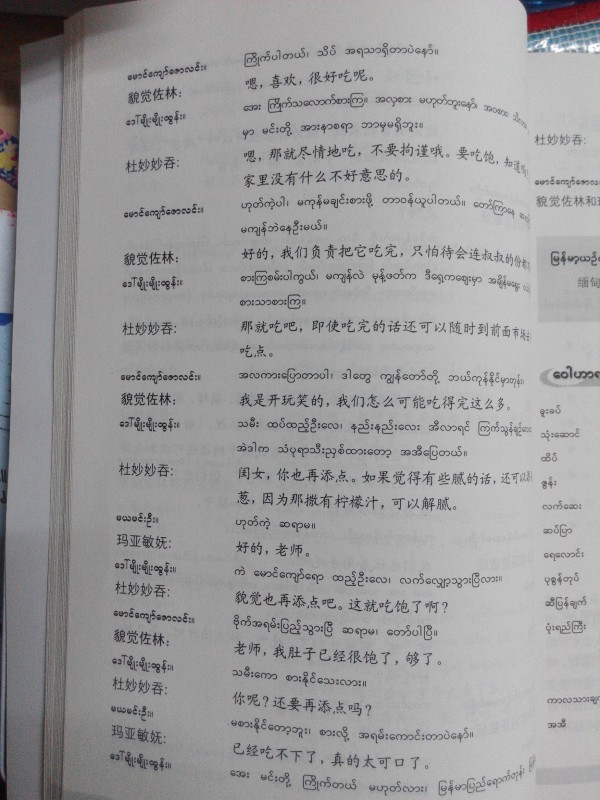 မောင်ကျော်ဇောလင်း။ ကြိုက်ပါတယ်၊ သိပ် အရသာရှိတာပဲနော်။
貌觉佐林： 嗯，喜欢，很好吃呢。
ဒေါ်မျိုးမျိုးထွန်း။ အေး ကြိုက်သလောက်စားကြ။ အလှစား မဟုတ်ဘူးနော်၊
မှာ မင်းတို့ အားနာစရာ ဘာမှမရှိဘူး။
杜妙妙吞： 嗯，那就尽情地吃，不要拘谨哦。要吃饱，知道
家里没有什么不好意思的。
မောင်ကျော်ဇောလင်း။ ဟုတ်ကဲ့ပါ၊ မကုန်မချင်းစားဖို့ တာဝန်ယူပါတယ်။ တော်ကြာနေ
မကျန်ဘဲနေဦးမယ်။
貌觉佐林： 好的，我们负责把它吃完，只怕待会连叔叔的份都
ဒေါ်မျိုးမျိုးထွန်း။ စားကြစမ်းပါကွယ်၊ မကျန်လဲ မုန့်ဖတ်က ဒီရှေ့ကဈေးမှာ အချိန်မရွေး
စားသာစားကြ။
杜妙妙吞： 那就吃吧，即使吃完的话还可以随时到前面市场去
吃点。
မောင်ကျော်ဇောလင်း။ အလကားပြောတာပါ၊ ဒါတွေ ကျွန်တော်တို့ ဘယ်ကုန်နိုင်မှာတုန်း။
貌觉佐林： 我是开玩笑的，我们怎么可能吃得完这么多。
ဒေါ်မျိုးမျိုးထွန်း။ သမီး ထပ်ထည့်ဦးလေ၊ နည်းနည်းလေး အီလာရင် ကြက်သွန်
အဲဒါက သံပုရာသီးညှစ်ထားတော့ အအီပြေတယ်။
杜妙妙吞： 闺女，你也再添点。如果觉得有些腻的话，还可以
葱，因为那撒有柠檬汁，可以解腻。
မယမင်းဦး။ ဟုတ်ကဲ့ ဆရာမ။
玛亚敏妩： 好的，老师。
ဒေါ်မျိုးမျိုးထွန်း။ ကဲ မောင်ကျော်ရော ထည့်ဦးလေ၊ လက်လျှော့သွားပြီလား။
杜妙妙吞： 貌觉也再添点吧。这就吃饱了啊？
မောင်ကျော်ဇောလင်း။ ဗိုက်အရမ်းပြည့်သွားပြီ ဆရာမ၊ တော်ပါပြီ။
貌觉佐林： 老师，我肚子已经很饱了，够了。
ဒေါ်မျိုးမျိုးထွန်း။ သမီးကော စားနိုင်သေးလား။
杜妙妙吞： 你呢？还要再添点吗？
မယမင်းဦး။ မစားနိုင်တော့ဘူး၊ စားလို့ အရမ်းကောင်းတာပဲနော်။
玛亚敏妩： 已经吃不下了，真的太可口了。
ဒေါ်မျိုးမျိုးထွန်း။ အေး မင်းတို့ ကြိုက်တယ် မဟုတ်လား၊ မြန်မာပြည်ရောက်တုန်း
杜妙妙吞：
မောင်ကျော်ဇောလင်း
貌觉佐林和
မြန်မာ့ယဉ်
缅甸
ဝေါဟာရ
ခူးခပ်
သုံးဆောင်
ထိပ်
ဇွန်း
လက်ဆေး
ဆပ်ပြာ
ရေလောင်း
ပုစွန်ထုပ်
ဆီပြန်ချက်
ပုံးရည်ကြီး
ကာလသား
အအီ